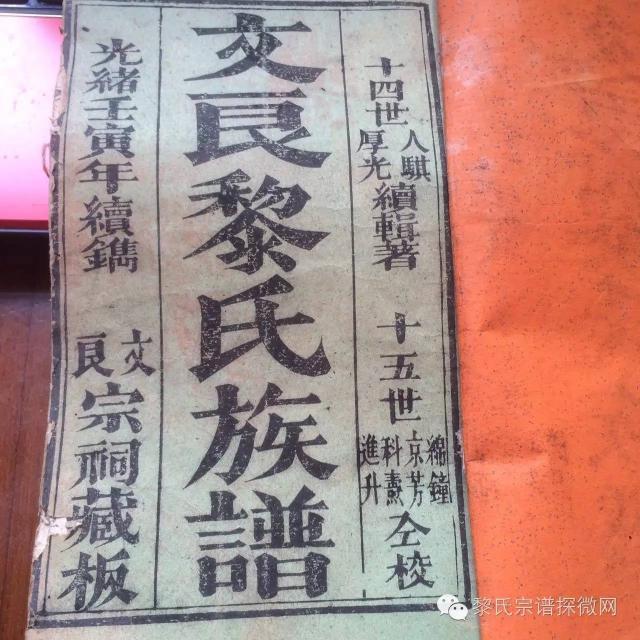 十四世人騏厚光續輯著
十五世綿鐘京芳科熏進升仝校
文良黎氏族譜
光緒壬寅年續鐫
文良宗祠藏板
黎氏宗谱探微网